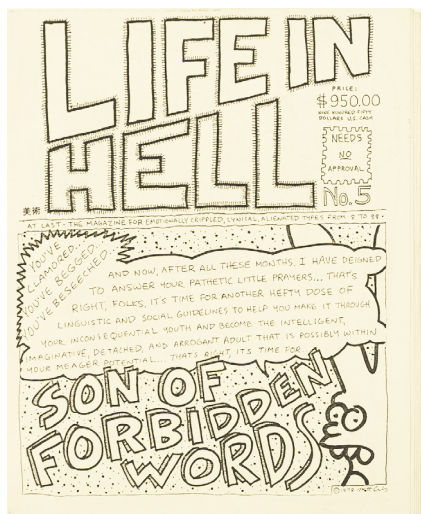 LIFE IN
HELL
PRICE:
$950.00
NINE HUNDRED FIFTY
DOLLARS U.S. CASH
NEEDS
NO
APPROVAL
No. 5
美術
AT LAST - THE MAGAZINE FOR EMOTIONALLY CRIPPLED, CYNICAL, ALIENATED TYPES FROM 8 TO 88 -
YOU'VE
CLAMORED.
YOU'VE BEGGED.
YOU'VE BESEECHED.
AND NOW, AFTER ALL THESE MONTHS, I HAVE DEIGNED
TO ANSWER YOUR PATHETIC LITTLE PRAYERS... THAT'S
RIGHT, FOLKS, IT'S TIME FOR ANOTHER HEFTY DOSE OF
LINGUISTIC AND SOCIAL GUIDELINES TO HELP YOU MAKE IT THROUGH
YOUR INCONSEQUENTIAL YOUTH AND BECOME THE INTELLIGENT,
IMAGINATIVE, DETACHED, AND ARROGANT ADULT THAT IS POSSIBLY WITHIN
YOUR MEAGER POTENTIAL.... THAT'S RIGHT, IT'S TIME FOR
SON OF
FORBIDDEN
WORDS